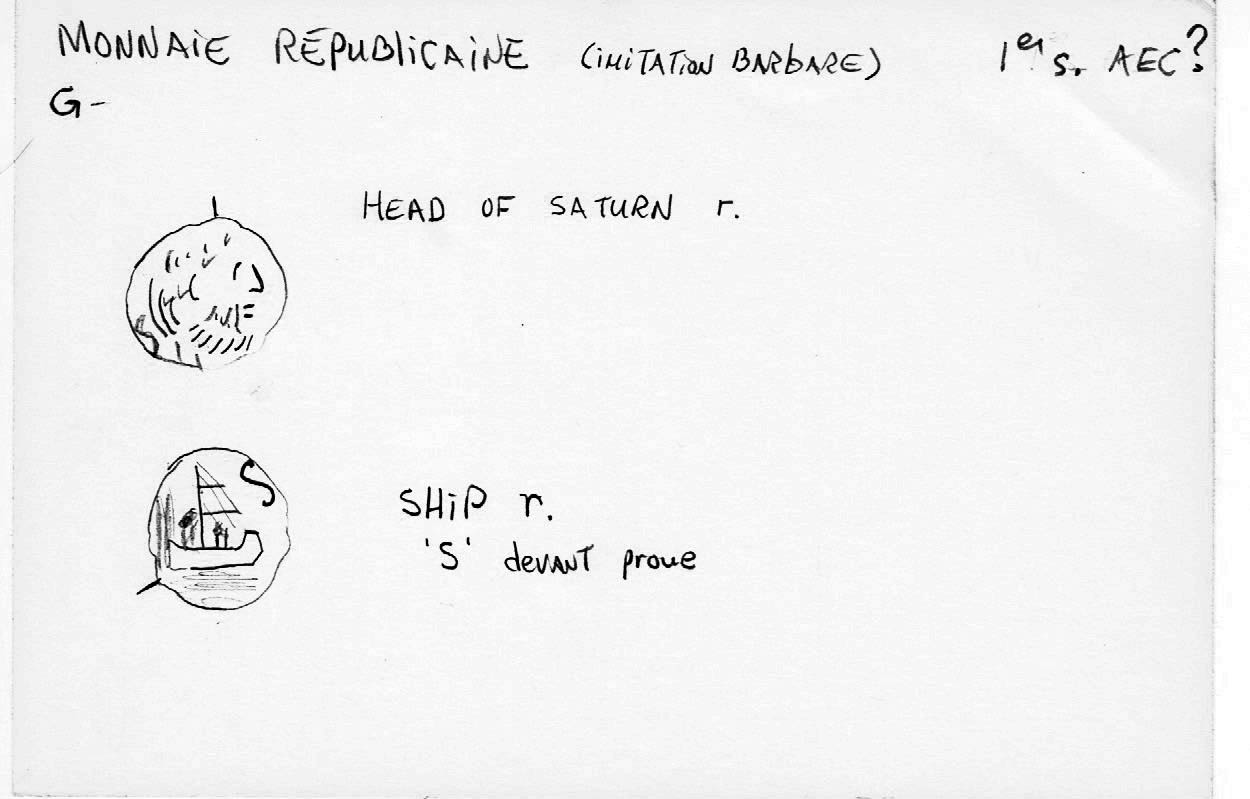 MONNAiE RÉPUBLiCAiNE (iMiTATiON BARbARE) 1er s. AEC?
G-
HEAD OF SATURN r.
S
SHiP r.
'S' devANT proue